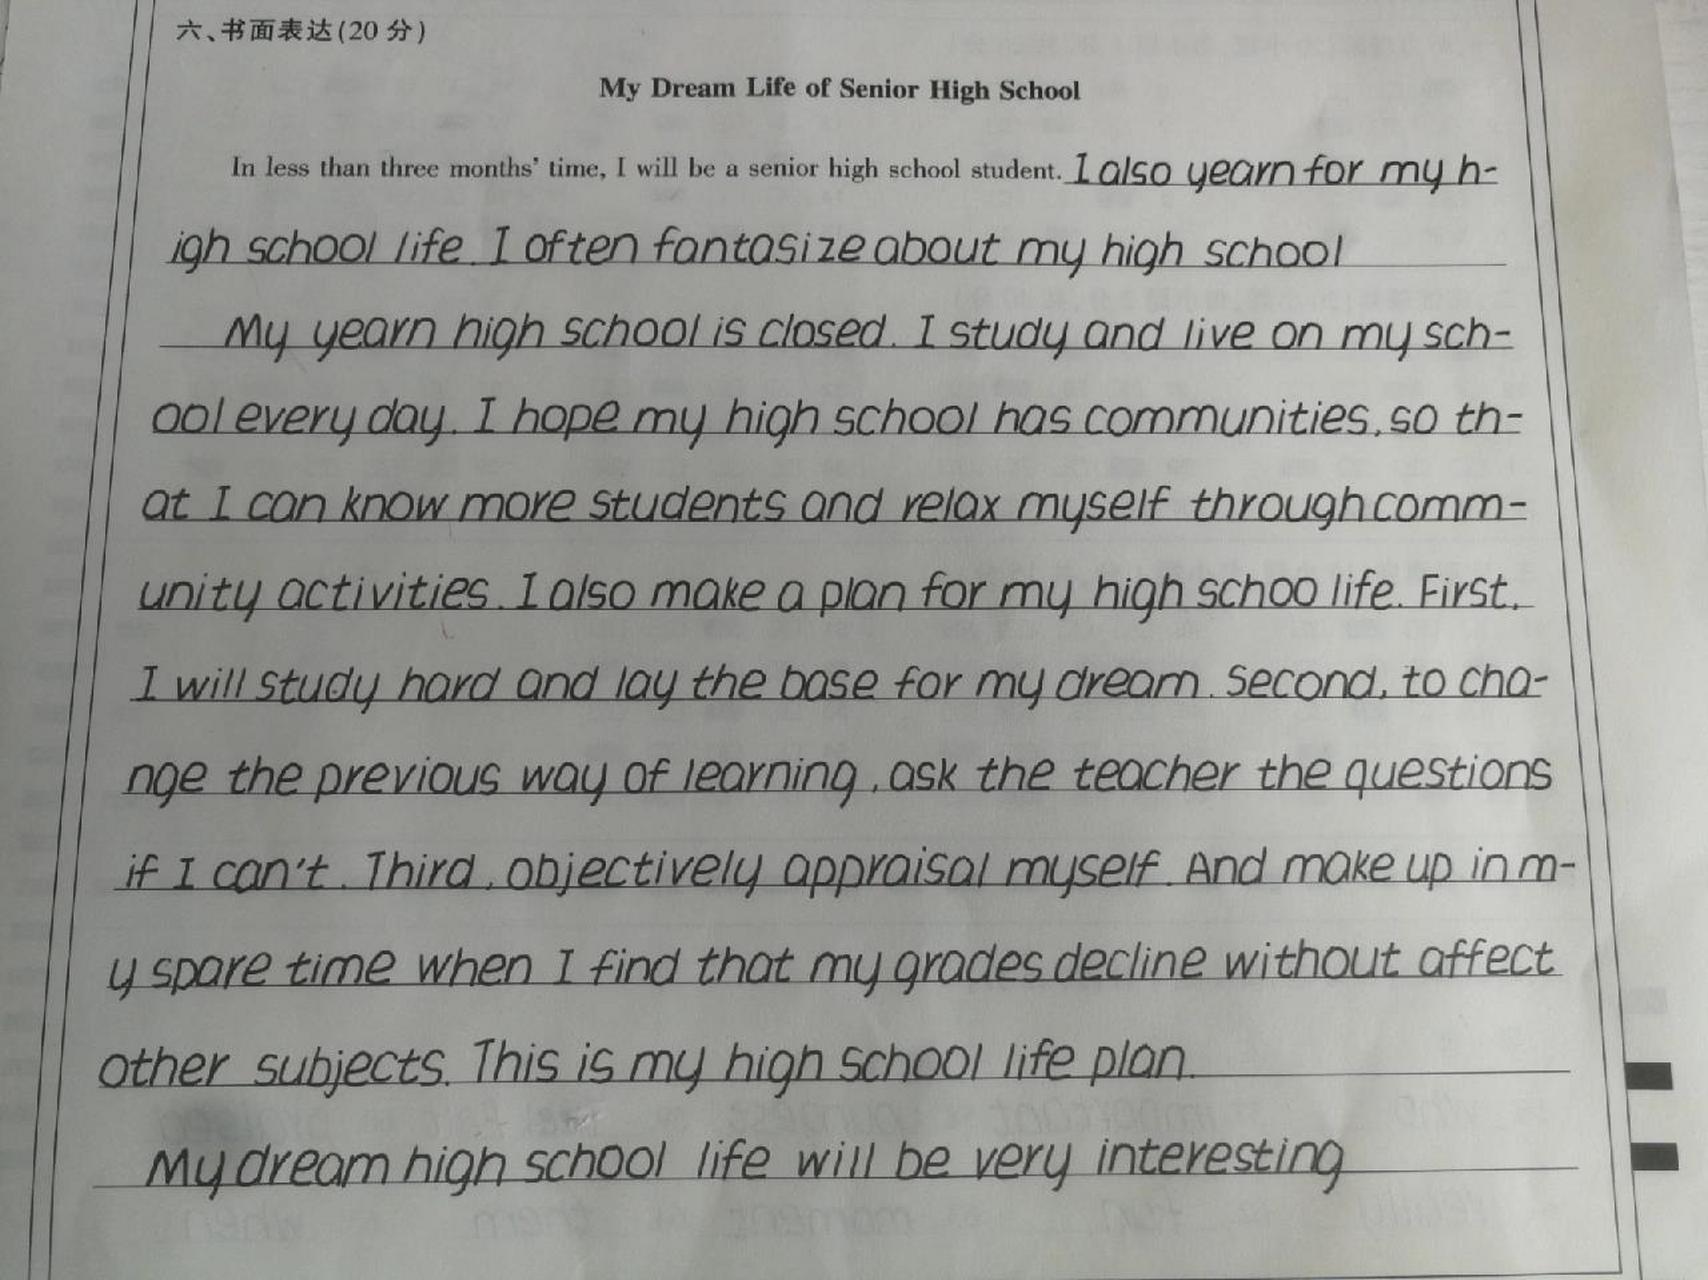 六、书面表达(20 分)
My Dream Life of Senior High School
In less than three months' time, I will be a senior high school student. I also yearn for my h-
igh school life. I often fantasize about my high school
My yearn high school is closed. I study and live on my sch-
ool every day. I hope my high school has communities, so th-
at I can know more students and relax myself through comm-
unity activities. I also make a plan for my high schoo life. First,
I will study hard and lay the base for my dream. Second, to cha-
nge the previous way of learning, ask the teacher the questions
if I can't. Third, objectively appraisal myself. And make up in m-
y spare time when I find that my grades decline without affect
other subjects. This is my high school life plan.
My dream high school life will be very interesting